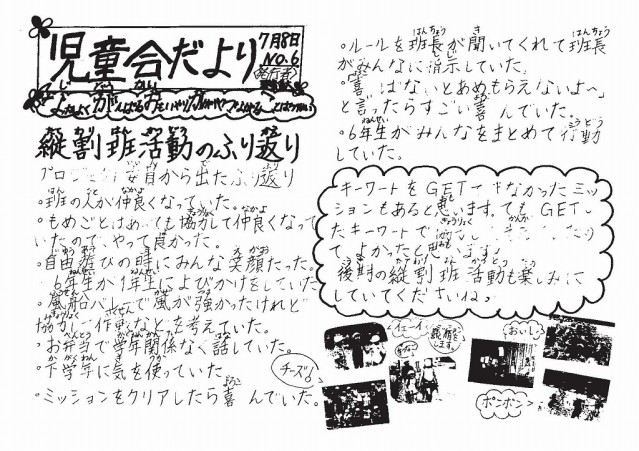 児童会だより
7月8日
NO.6
発行者
縦割班活動のふり返り
プロジェクト委員から出たふり返り
・班の人が仲良くなっていた。
・もめごとはあっても協力して仲良くなって
いたので、やって良かった。
・自由遊びの時にみんな笑顔だった。
・6年生が1年生によびかけをしていた
・風船バレーで風が強かったけれど
協力して作戦などを考えていた。
・お弁当で学年関係なく話していた。
・下学年に気を使っていた
・ミッションをクリアしたら喜んでいた。
チーズ♪
・ルールを班長が聞いてくれて班長
がみんなに指示していた。
・「喜ばないとあめもらえないよ〜」
と言ったらすごい喜んでいた。
・6年生がみんなをまとめて行動
していた。
キーワードをGETできなかったミッ
ションもあると思います。でもGETし
たキーワードで
てよかったと思います!
後期の縦割班活動も楽しみに
していてくださいね。
イエーイ
おいしい
ポンポン